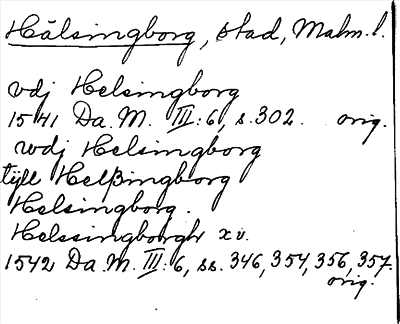 Hälsingborg, stad, Malm. l.
vdj Helsingborg
1541 Da. M. III: 6, s. 302. orig.
wdj Helsingborg
tijll Helßingborg
Helsingborg.
Helssingborgh x v.
1542 Da. M. III: 6, ss. 346, 354, 356, 357.
orig.